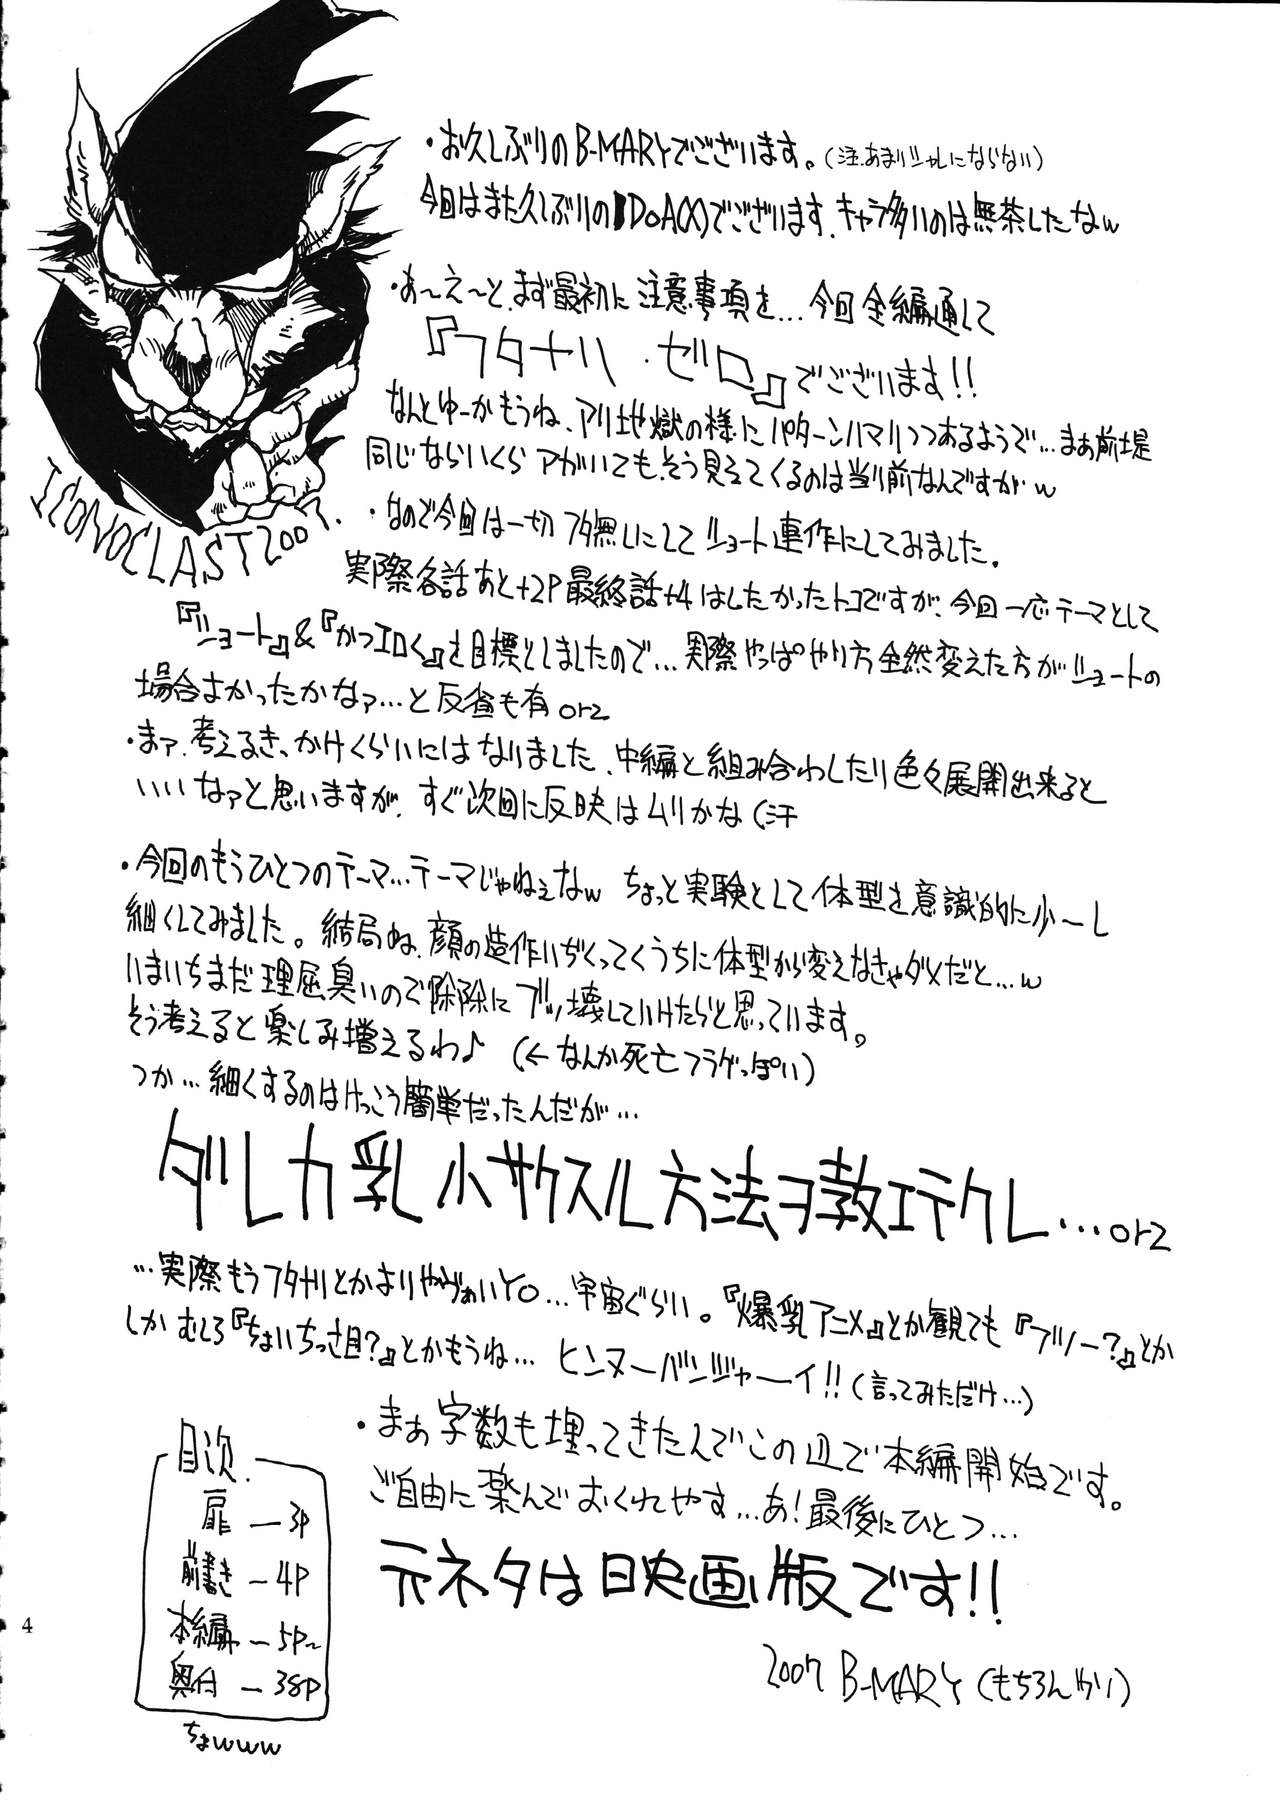 ICONOCLAST 2007.
・お久しぶりのB-MARYでございます。(注.あまりシャレにならない)
今回はまた久しぶりのDOA(X)でございます、キャラ多いのは無茶したなw
・あ〜え〜と、まず最初に注意事項を…今回全編通して
『フタナリ・ゼロ』でございます!!
なんとゆーかもうね、アリ地獄の様にパターンハマりつつあるようで…まぁ前提
同じならいくらアがいても、そう見えてくるのは当り前なんですがw
・なので今回は一切フタ無しにしてショート連作にしてみました。
実際各話あと+2P最終話+4はしたかったトコですが、今回一応テーマとして
『ショート』&『かつエロく』を目標としましたので…実際やっぱやり方全然変えた方がショートの
場合よかったかなァ…と反省も有orz
・まァ、考えるきっかけくらいにはなりました、中編と組み合わしたり色々展開出来ると
いいなァと思いますが、すぐ次回に反映はムリかな(汗
・今回のもうひとつのテーマ…テーマじゃねぇなw ちょっと実験として体型を意識的に少〜し
細くしてみました。結局ぬ、顔の造作いぢくってくうちに体型から変えなきゃダメだと…w
いまいちまだ理屈臭いので除除にブッ壊していけたらと思っています。
そう考えると楽しみ増えるわ♪ (←なんか死亡フラグっぽい)
つか…細くするのはけっこう簡単だったんだが…
ダレカ乳小サクスル方法ヲ教エテクレ…orz
…実際もうフタナリとかよりやヴぁいYO…宇宙ぐらい。『爆乳アニメ』とか観ても『フツー?』とか
しかむしろ『ちょいちっさ目?』とかもうね… ヒンヌーバンジャーイ!!(言ってみただけ…)
・まぁ字数も埋ってきたんでこの辺で本編開始です。
ご自由に楽んでおくれやす…あ!最後にひとつ…
元ネタは映画版です!!
2007 B-MARY(もちろんかり)
目次.
扉 — 3P
前書き — 4P
本編 — 5P〜
奥付 — 38P
ちょwww
4